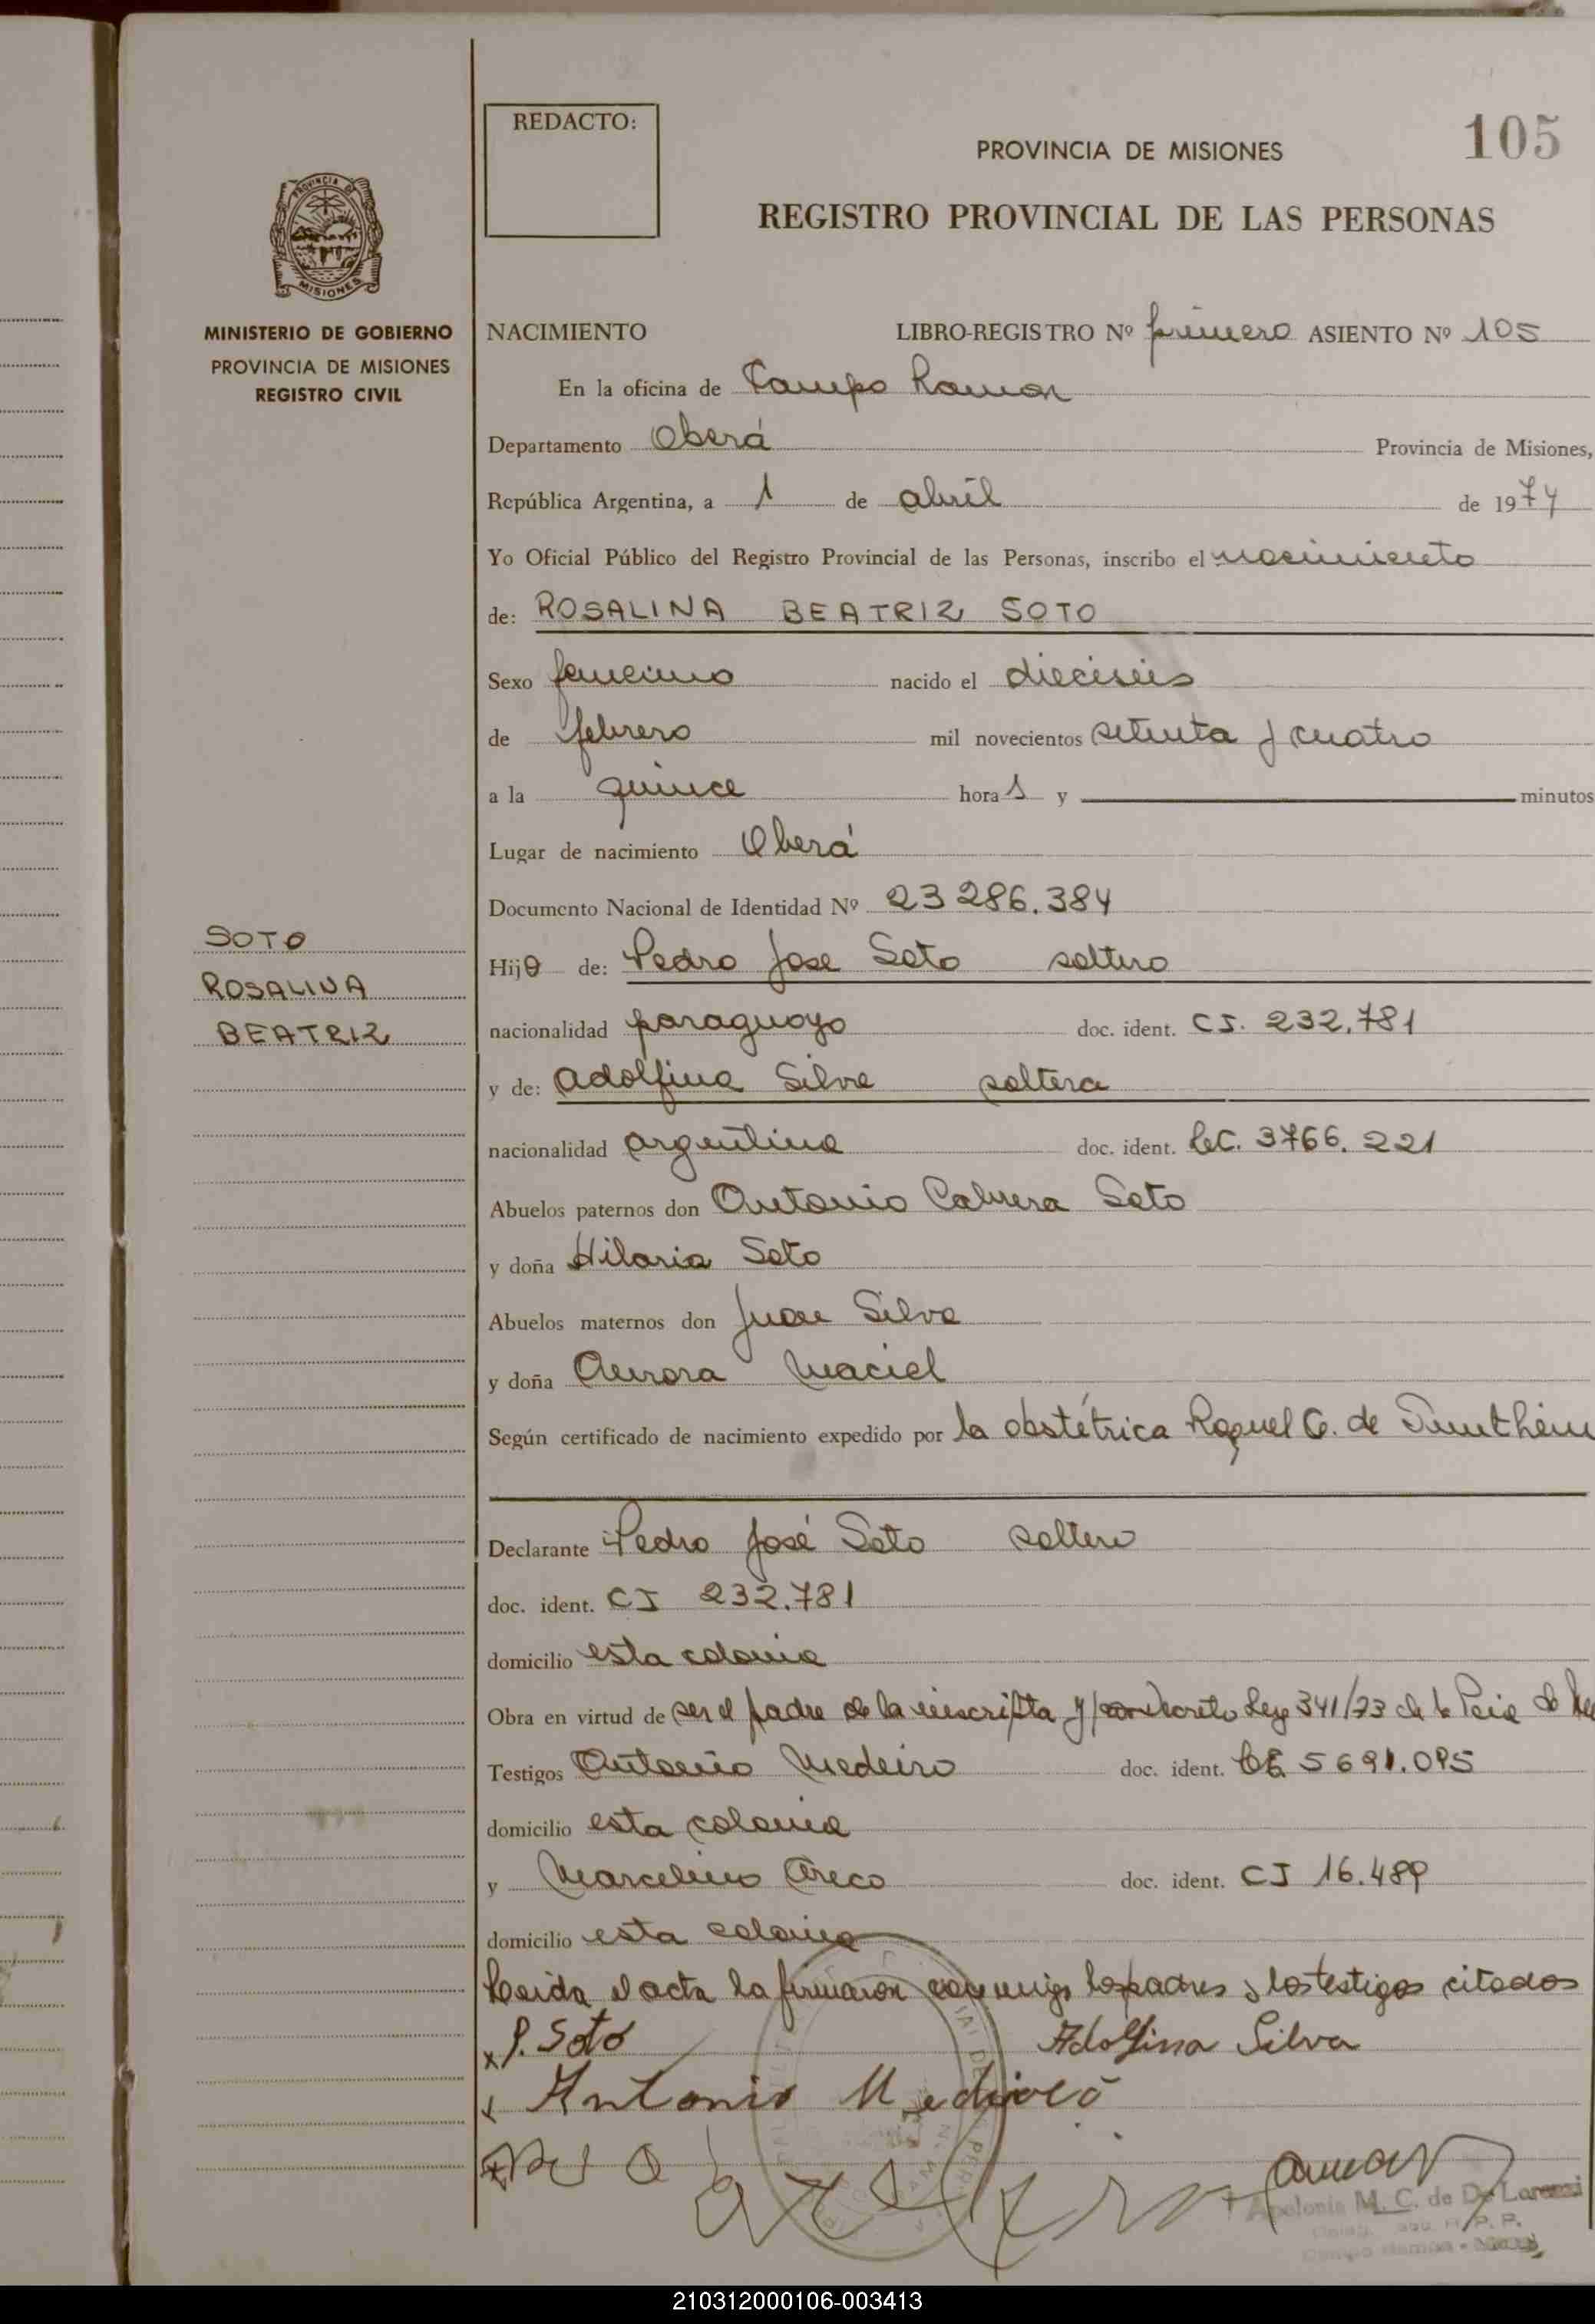 REDACTO:
PROVINCIA DE MISIONES
105
REGISTRO PROVINCIAL DE LAS PERSONAS
PROVINCIA D
MISIONES
MINISTERIO DE GOBIERNO
PROVINCIA DE MISIONES
REGISTRO CIVIL
NACIMIENTO LIBRO-REGISTRO Nº primero ASIENTO Nº 105
En la oficina de Campo Ramon
Departamento Oberá Provincia de Misiones,
República Argentina, a 1 de abril de 1974
Yo Oficial Público del Registro Provincial de las Personas, inscribo el nacimiento
de: ROSALINA BEATRIZ SOTO
Sexo femenino nacido el dieciseis
de febrero mil novecientos setenta y cuatro
a la quince hora s y minutos
Lugar de nacimiento Oberá
Documento Nacional de Identidad Nº 23 286.384
SOTO
ROSALINA
BEATRIZ
Hija de: Pedro Jose Soto soltero
nacionalidad paraguayo doc. ident. CI. 232.781
y de: Adolfina Silva soltera
nacionalidad argentina doc. ident. LC. 3766.221
Abuelos paternos don Antonio Cabrera Soto
y doña Hilaria Soto
Abuelos maternos don Juan Silva
y doña Aurora Maciel
Según certificado de nacimiento expedido por la obstétrica Raquel G. de
Declarante Pedro José Soto soltero
doc. ident. CI 232.781
domicilio esta colonia
Obra en virtud de ser el padre de la inscripta y Decreto Ley 341/73 de la Pcia de
Testigos Antonio Medeiro doc. ident. LE 5691.095
domicilio esta colonia
y Marcelino Areco doc. ident. CI 16.489
domicilio esta colonia
Leida el acta la firmaron conmigo los padres y los testigos citados
x P. Soto Adolfina Silva
x Antonio
Apolonia M. C. de De Lorenzi
210312000106-003413